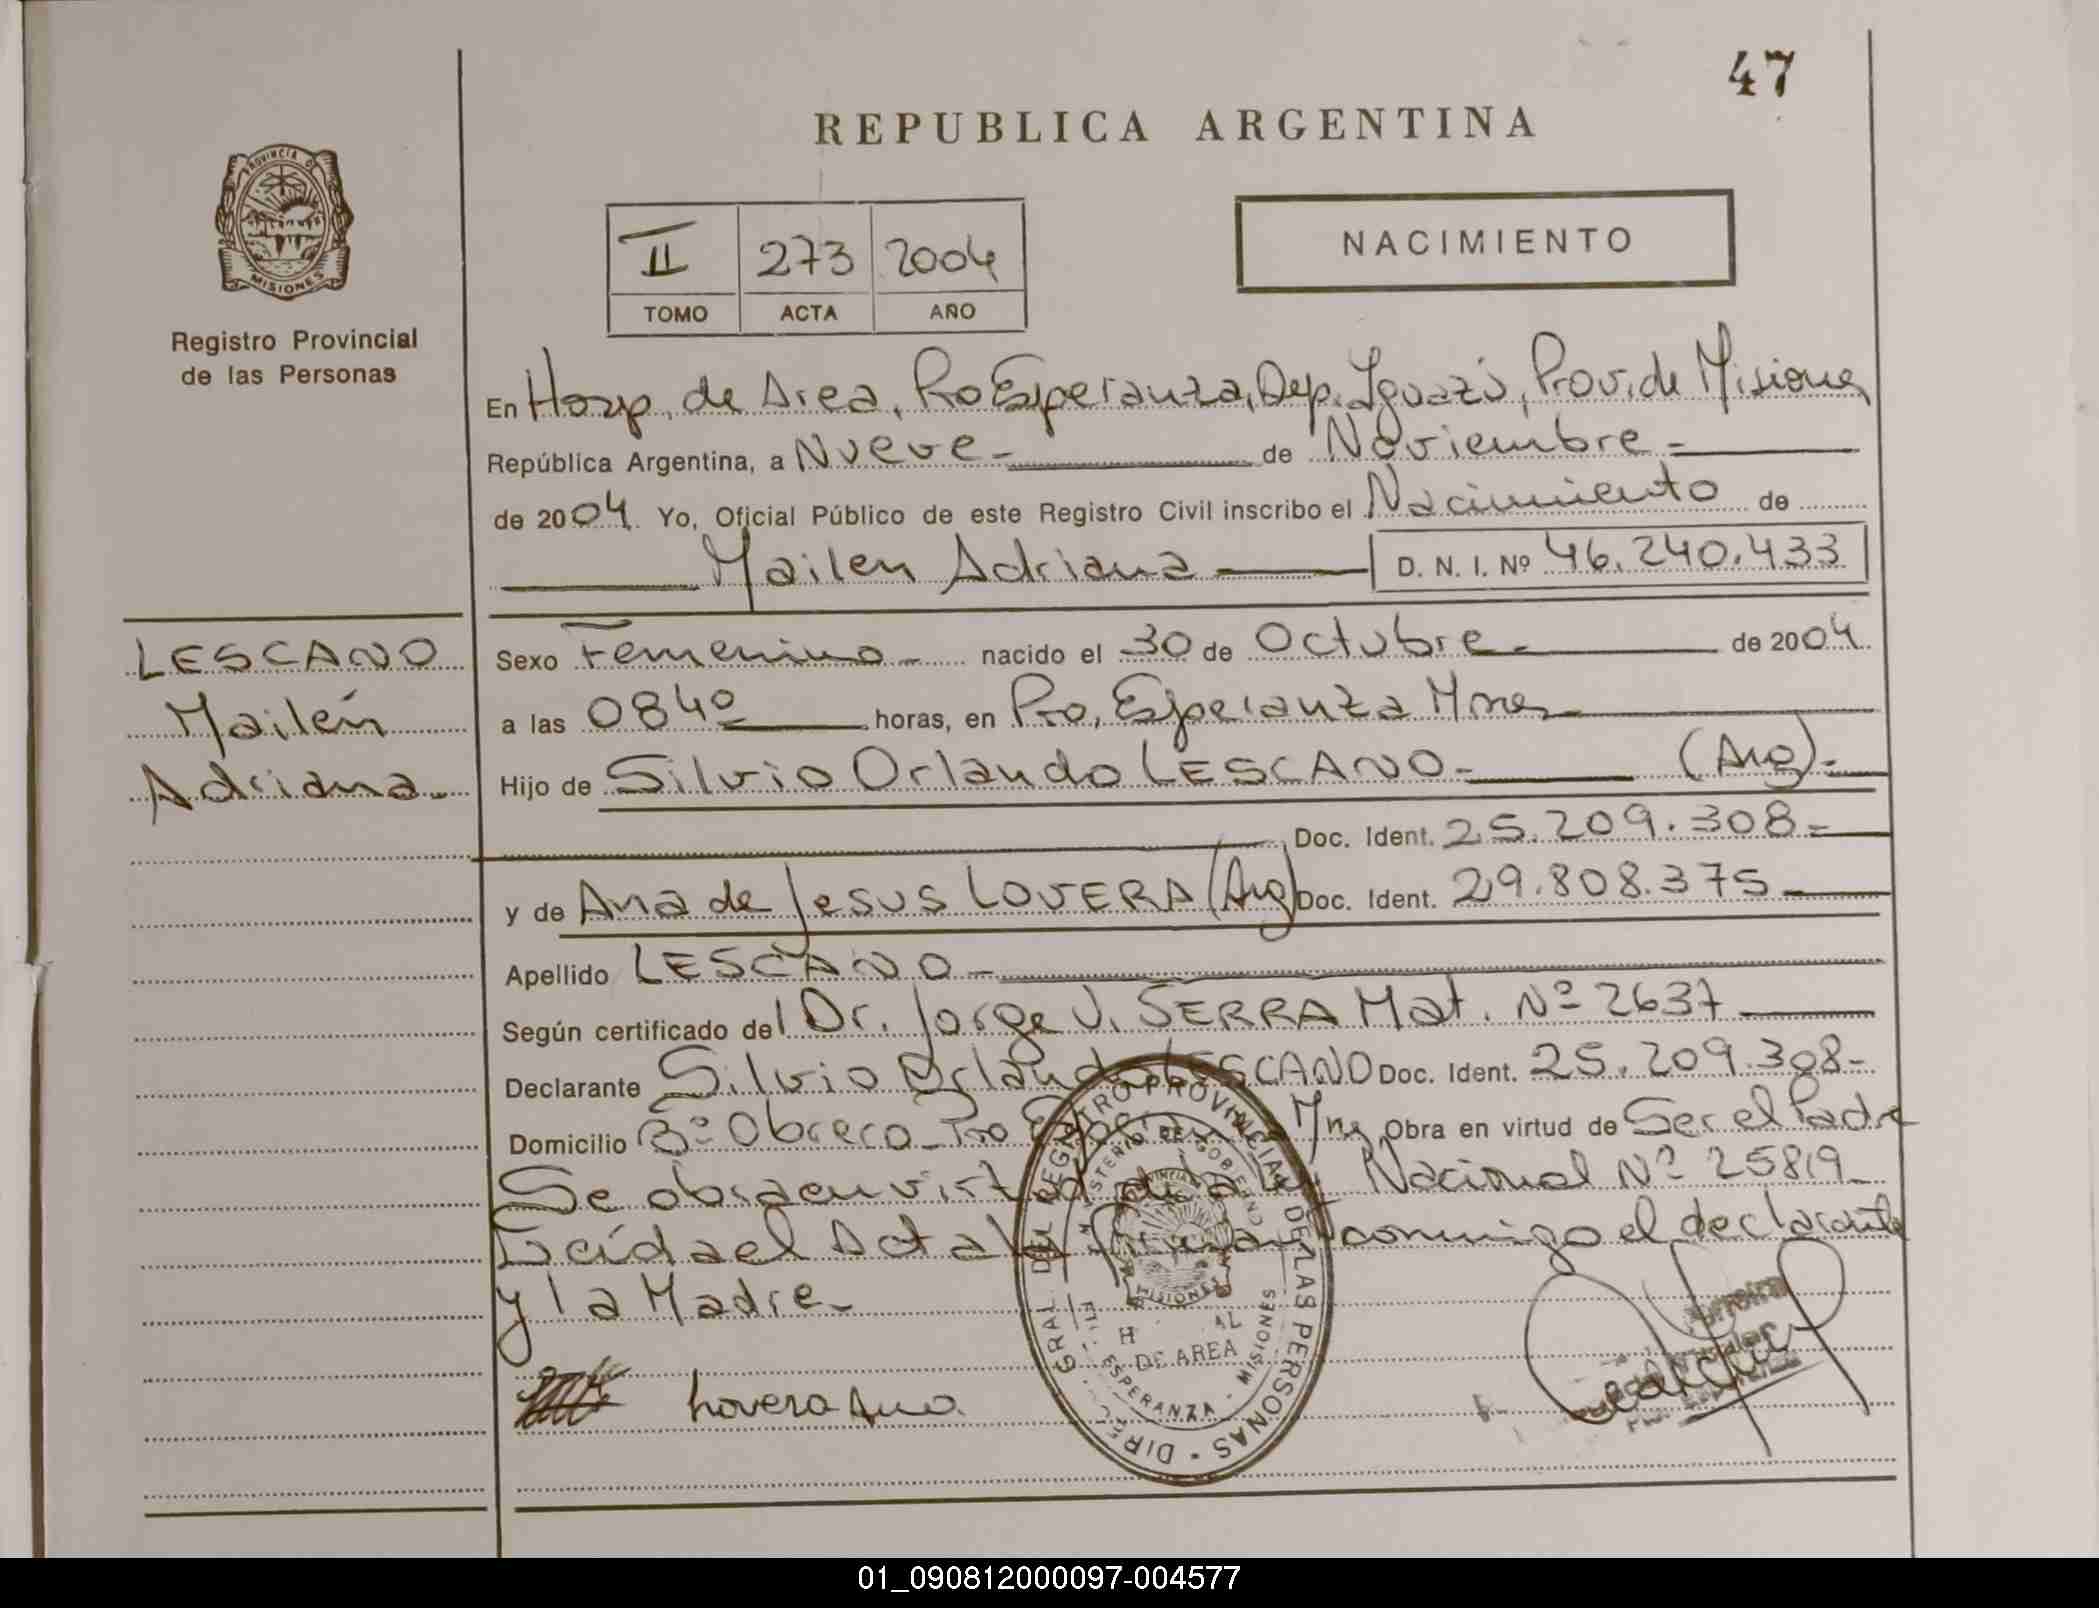 47
REPUBLICA ARGENTINA
PROVINCIA DE
MISIONES
Registro Provincial
de las Personas
II 273 2004
TOMO ACTA AÑO
NACIMIENTO
En Hosp. de Area, Pto Esperanza, Dep. Iguazú, Prov. de Misiones
República Argentina, a Nueve- de Noviembre-
de 2004 Yo, Oficial Público de este Registro Civil inscribo el Nacimiento de
Mailen Adriana D. N. I. Nº 46.240.433
LESCANO
Mailén
Adriana.-
Sexo Femenino- nacido el 30 de Octubre- de 2004
a las 0840 horas, en Pto. Esperanza Mnes-
Hijo de Silvio Orlando LESCANO- (Arg)-
Doc. Ident. 25.209.308-
y de Ana de Jesus LOVERA (Arg) Doc. Ident. 29.808.375-
Apellido LESCANO-
Según certificado del Dr. Jorge V. SERRA Mat. Nº 2637
Declarante Silvio Orlando LESCANO Doc. Ident. 25.209.308-
Domicilio Bº Obrero- Pto Obra en virtud de Ser el Padre
Se obra en virtud de la Ley Nacional Nº 25819-
Leída el Acta la firman conmigo el declarante
y la Madre-
Lovera Ana
DIREC. GRAL. DEL REGISTRO PROVINCIAL DE LAS PERSONAS
MINISTERIO DE GOBIERNO
MISIONES
DE AREA
ESPERANZA - MISIONES
01_090812000097-004577